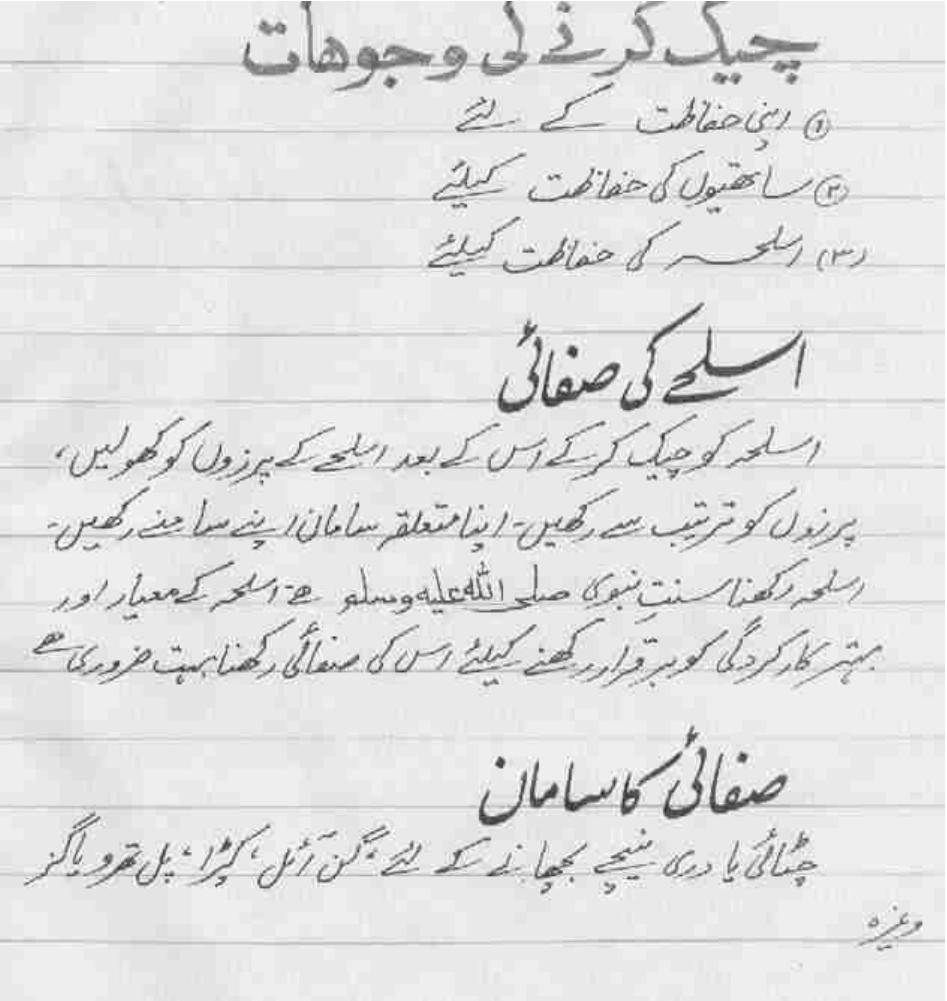 چیک کرنے کی وجوھات
① اپنی حفاظت کے لئے
② ساتھیوں کی حفاظت کیلئے
(۳) اسلحہ کی حفاظت کیلئے
اسلحے کی صفائی
اسلحہ کو چیک کر کے اس کے بعد اسلحے کے پرزوں کو کھولیں،
پرزوں کو ترتیب سے رکھیں۔ اپنا متعلقہ سامان اپنے سامنے رکھیں۔
اسلحہ رکھنا سنتِ نبوی صلی اللہ علیہ وسلم ھے اسلحہ کے معیار اور
بہتر کارکردگی کو برقرار رکھنے کیلئے اس کی صفائی رکھنا بہت ضروری ھے
صفائی کا سامان
چٹائی یا دری نیچے بچھانے کے لئے، گن آئل، کپڑا، پل تھرو یا گز
وغیرہ